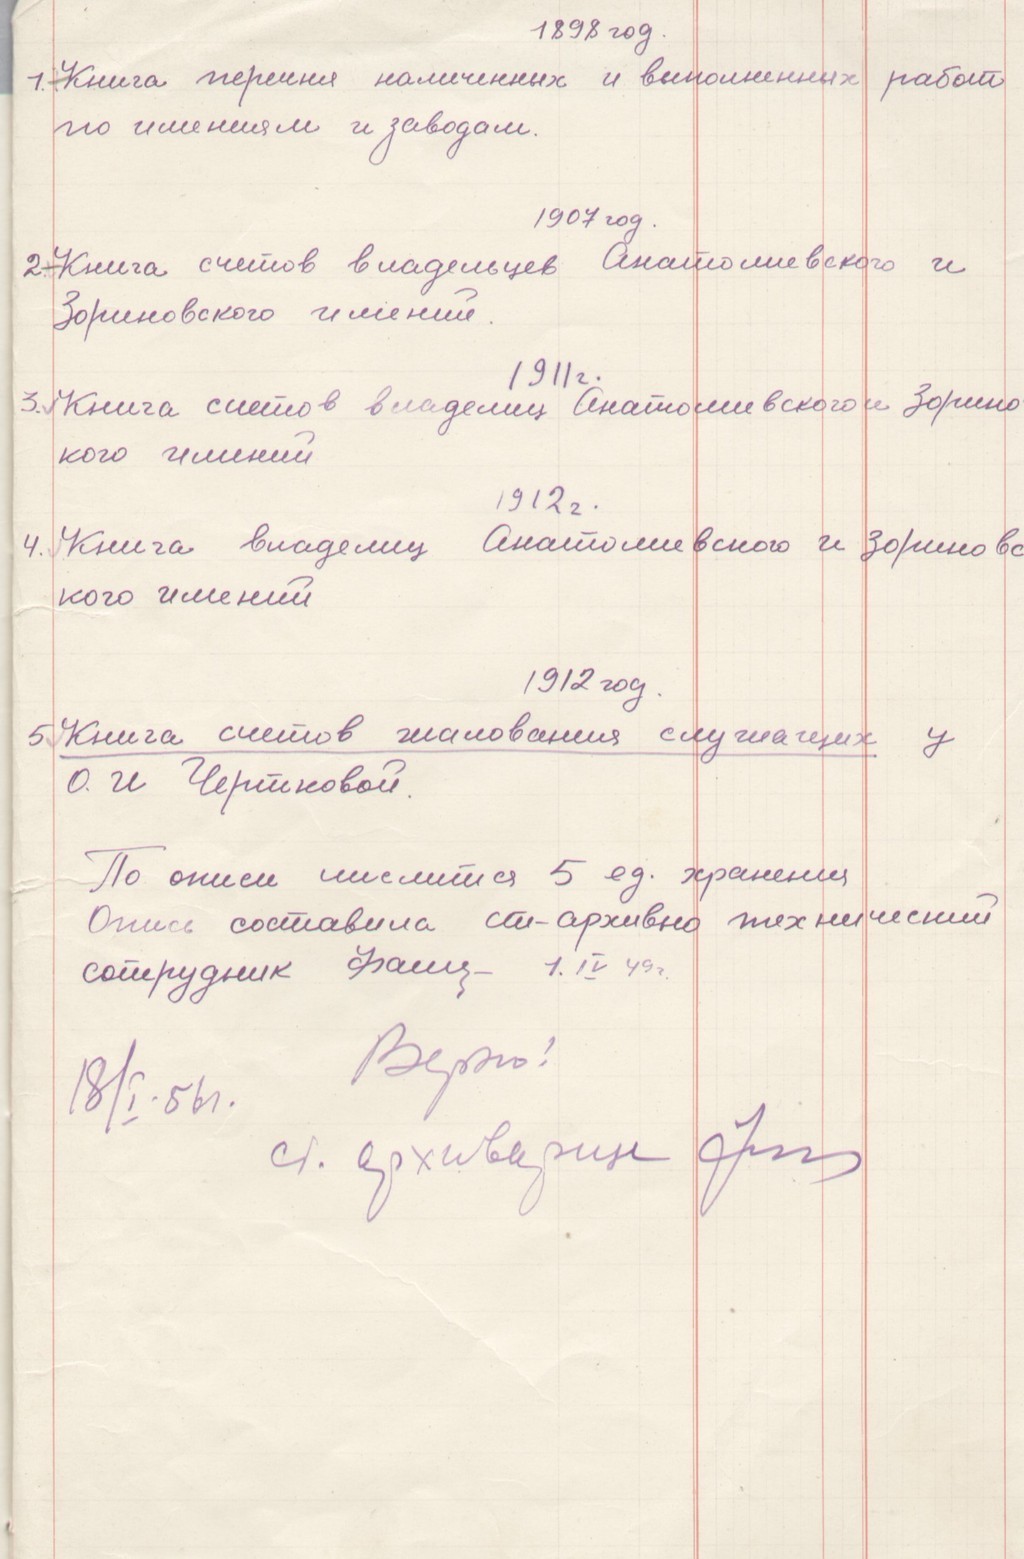 1898 год.
1. Книга перечня намеченных и выполненных работ
по имениям и заводам.
1907 год.
2. Книга счетов владельцев Анатолиевского и
Зориновского имений.
1911 г.
3. Книга счетов владелиц Анатолиевского и Зорино
кого имений
1912 г.
4. Книга владелиц Анатолиевского и Зориновс
кого имений
1912 год.
5. Книга счетов жалования служащих у
О. И Чертковой.
По описи числится 5 ед. хранения
Опись составила ст-архивно технический
сотрудник 1. IV 49 г.
Верно!
18/I-56г.
ст. архивариус